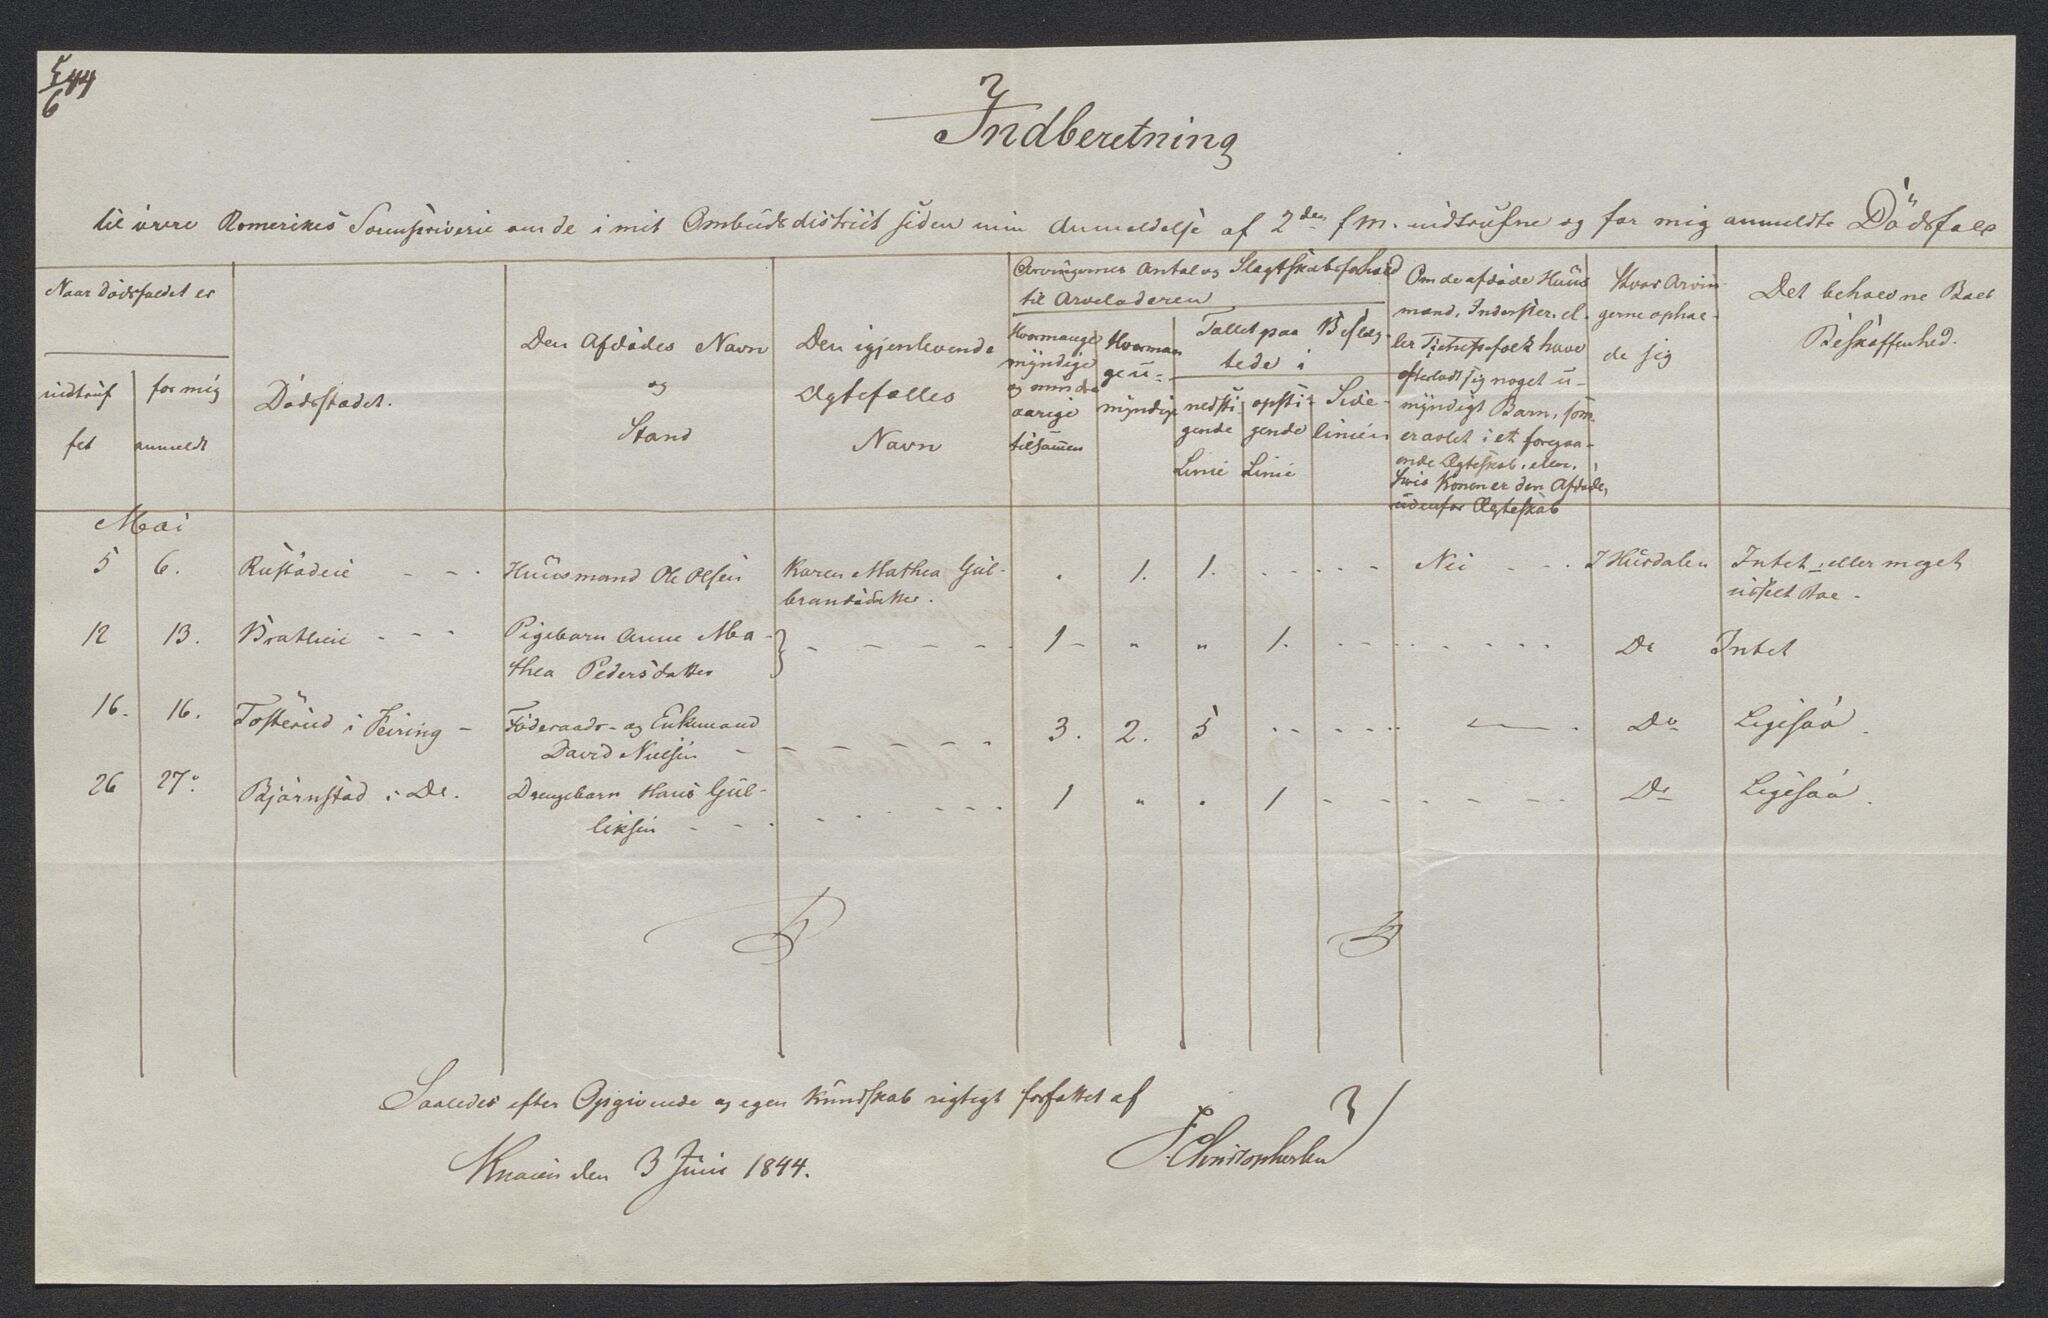 5/6 44
Indberetning
til övre Romerikes Sorenskriverie om de i mit Ombudsdistrict siden min Anmeldelse af 2den f. M. indtrufne og for mig anmeldte Dödsfald
Naar Dödsfaldet er
indtruf
fet
for mig
anmeldt
Dödsstedet.
Den Afdödes Navn
og
Stand
Den igjenlevende
Ægtefælles
Navn
Arvingernes Antal og Slægtskabsforhold
til Arveladeren
Hvormange
myndige
og mindre
aarige
tilsamen
Hvorman
ge u-
myndige
Tallet paa Beslæg
tede i
nedsti
gende
Linie
opsti-
gende
Linie
Side-
linien
Om de afdöde Huus
mænd, Inderster, el-
ler Tjenestefolk have
efterladt sig noget u-
myndigt Barn, som
er avlet i et foregaa-
ende Ægteskab, eller,
hvis Konen er den Afdöde,
udenfor Ægteskab
Hvor Arvin-
gerne ophol-
de sig
Det beholdne Boes
Beskaffenhed.
Mai
5 6. Rustadeie - - - Huusmand Ole Olsen Karen Mathea Gul- 1. 1. - - - - Nei - - - I Hurdalen Intet, eller meget
brandsdatter. usselt Boe.
12 13. Bratlieie - - - Pigebarn Anne Ma- - - - - - 1 - " " 1. - - - - - - - Do Intet
thea Pedersdatter
16. 16. Tosterud i Feiring - Föderaads- og Enkemand 3. 2. 5 - - - - - Do Ligesaa.
David Nielsen - - - - - -
26 27. Björnstad i Do. Drengebarn Hans Gul- - - - 1 " " 1 - - - - - - Do Ligesaa.
liksen - - - - - -
Saaledes efter Opgivende og egen Kundskab rigtigt forfattet af
Knaien den 3 Juni 1844.
J. Christophersen